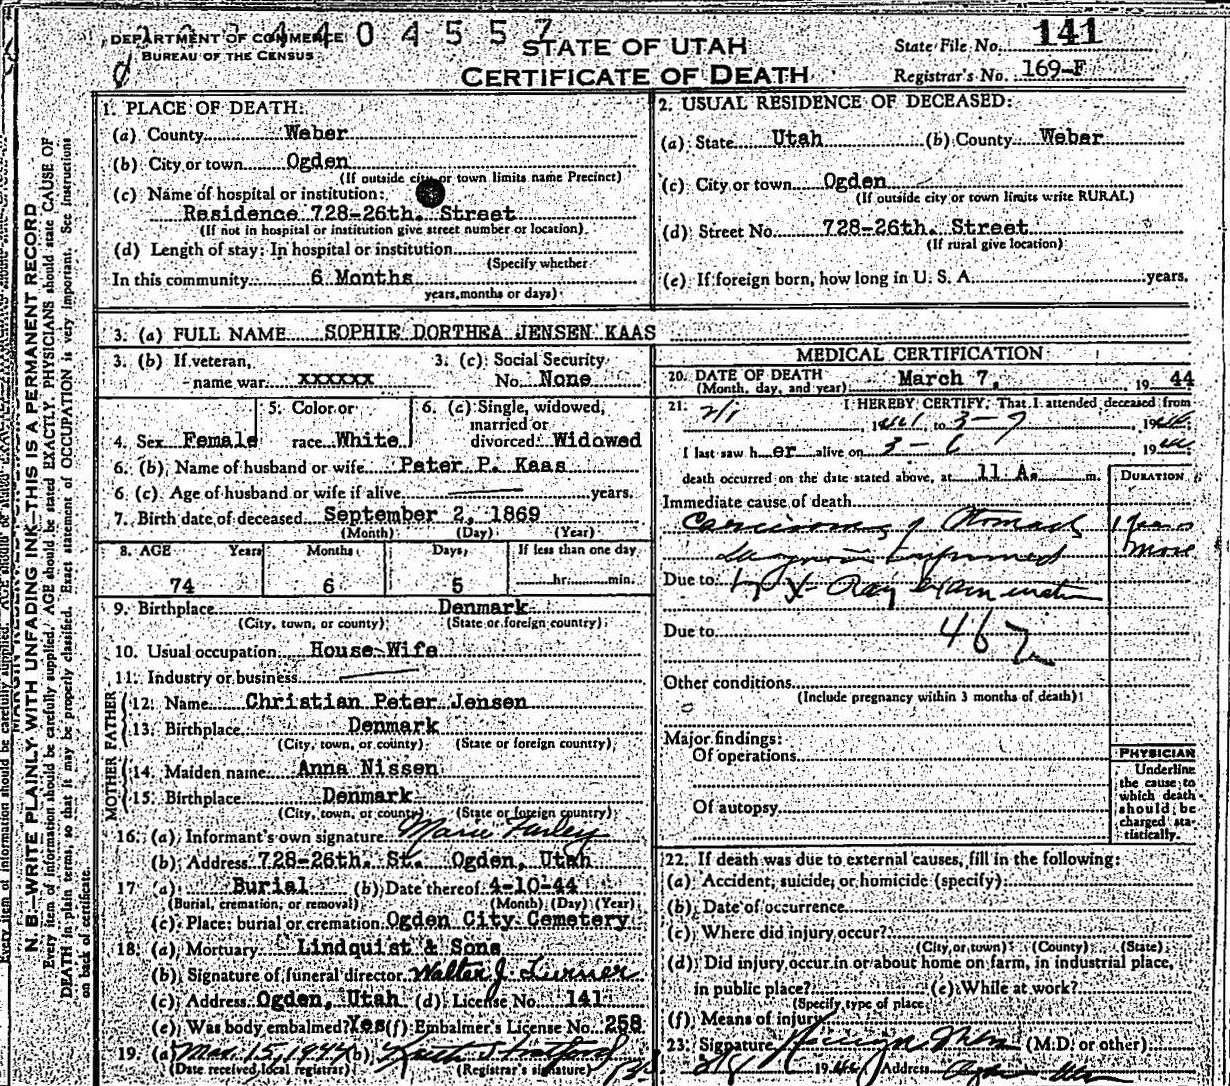 DEPARTMENT OF COMMERCE
BUREAU OF THE CENSUS
4404557
STATE OF UTAH
CERTIFICATE OF DEATH
State File No. 141
Registrar's No. 169-F
N. B.—WRITE PLAINLY WITH UNFADING INK—THIS IS A PERMANENT RECORD
Every item of information should be carefully supplied. AGE should be stated EXACTLY. PHYSICIANS should state CAUSE OF
DEATH in plain terms, so that it may be properly classified. Exact statement of OCCUPATION is very important. See instructions
on back of certificate.
1. PLACE OF DEATH:
(a) County Weber
(b) City or town Ogden
(If outside city or town limits name Precinct)
(c) Name of hospital or institution:
Residence 728-26th. Street
(If not in hospital or institution give street number or location)
(d) Length of stay: In hospital or institution
(Specify whether
In this community 6 Months
years, months or days)
2. USUAL RESIDENCE OF DECEASED:
(a) State Utah (b) County Weber
(c) City or town Ogden
(If outside city or town limits write RURAL)
(d) Street No. 728-26th. Street
(If rural give location)
(e) If foreign born, how long in U. S. A. years.
3. (a) FULL NAME SOPHIE DORTHEA JENSEN KAAS
3. (b) If veteran, name war xxxxxx
3. (c) Social Security No. None
4. Sex Female
5. Color or race White
6. (a) Single, widowed, married or divorced Widowed
6. (b) Name of husband or wife Peter P. Kaas
6 (c) Age of husband or wife if alive years.
7. Birth date of deceased September 2, 1869
(Month) (Day) (Year)
8. AGE Years Months Days If less than one day
74 6 5 hr. min.
9. Birthplace Denmark
(City, town, or county) (State or foreign country)
10. Usual occupation House Wife
11. Industry or business
FATHER
12. Name Christian Peter Jensen
13. Birthplace Denmark
(City, town, or county) (State or foreign country)
MOTHER
14. Maiden name Anna Nissen
15. Birthplace Denmark
(City, town, or county) (State or foreign country)
16. (a) Informant's own signature Marie Furley
(b) Address 728-26th. St. Ogden, Utah
17 (a) Burial (b) Date thereof 4-10-44
(Burial, cremation, or removal) (Month) (Day) (Year)
(c) Place: burial or cremation Ogden City Cemetery
18. (a) Mortuary Lindquist & Sons
(b) Signature of funeral director Walter J. Turner
(c) Address Ogden, Utah (d) License No. 141
(e) Was body embalmed? Yes (f) Embalmer's License No. 258
19. (a) Mar. 15, 1944 (b)
(Date received local registrar) (Registrar's signature)
MEDICAL CERTIFICATION
20. DATE OF DEATH
(Month, day, and year) March 7, 1944
21. I HEREBY CERTIFY: That I attended deceased from
2/1, 19 to 3-7, 19
I last saw her alive on 3-6 19
death occurred on the date stated above, at 11 A. m.
DURATION
Immediate cause of death
Carcinoma of Stomach 1 year
more
Diagnosis confirmed
Due to by X-Ray examination
Due to 46
Other conditions
(Include pregnancy within 3 months of death)
Major findings:
Of operations
Of autopsy
PHYSICIAN
Underline the cause to which death should be charged statistically.
22. If death was due to external causes, fill in the following:
(a) Accident, suicide, or homicide (specify)
(b) Date of occurrence
(c) Where did injury occur?
(City or town) (County) (State)
(d) Did injury occur in or about home on farm, in industrial place,
in public place? (e) While at work?
(Specify type of place
(f) Means of injury
23. Signature (M.D. or other)
19 Address